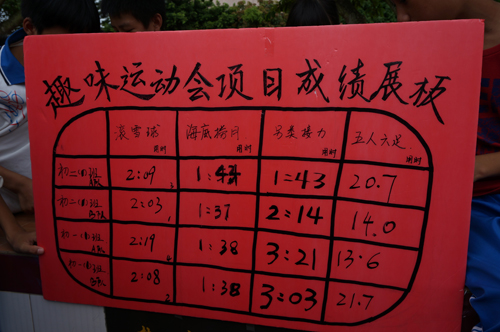 趣味运动会项目成绩展板
滚雪球 用时 海底捞月 用时 另类接力 用时 五人六足 用时
初二(1)班 A队 2:09 3 1:44 1:43 20.7
初二(1)班 B队 2:03 1 1:37 2:14 14.0
初一(1)班 A队 2:19 4 1:38 3:21 13.6
初一(1)班 B队 2:08 2 1:38 3:03 21.7